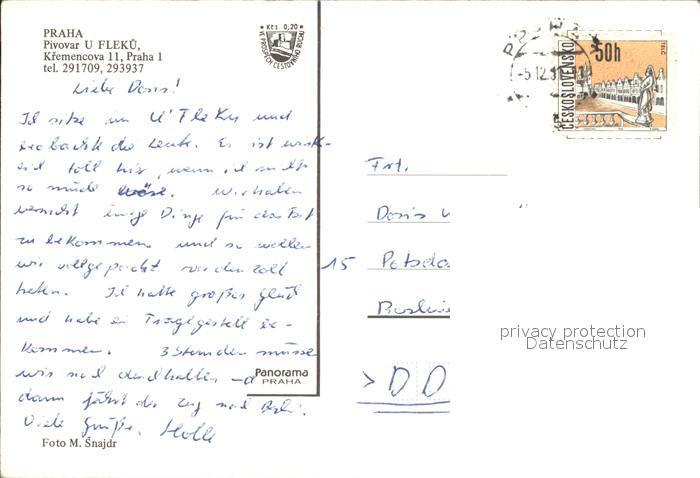 PRAHA
Pivovar U FLEKŮ,
Křemencova 11, Praha 1
tel. 291709, 293937
Kčs 0,20
VE PROSPĚCH CESTOVNÍHO RUCHU
Liebe Doris!
Ich sitze im U Fleku und
beobachte die Leute. Es ist
toll hier, wenn ich nicht
so müde wäre. Wir haben
versucht einige Dinge für das Fest
zu bekommen und so wollen
wir vollgepackt vor den Zoll
treten. Ich hatte großes Glück
und habe ein Tragegestell be-
kommen. 3 Stunden müssen
wir noch durchhalten und
dann fährt der Zug nach Berlin.
Viele Grüße
Foto M. Šnajdr
Panorama
PRAHA
ČESKOSLOVENSKO
50h
TELČ
Frl.
Doris
15 Potsda
Berline
> DD
privacy protection
Datenschutz